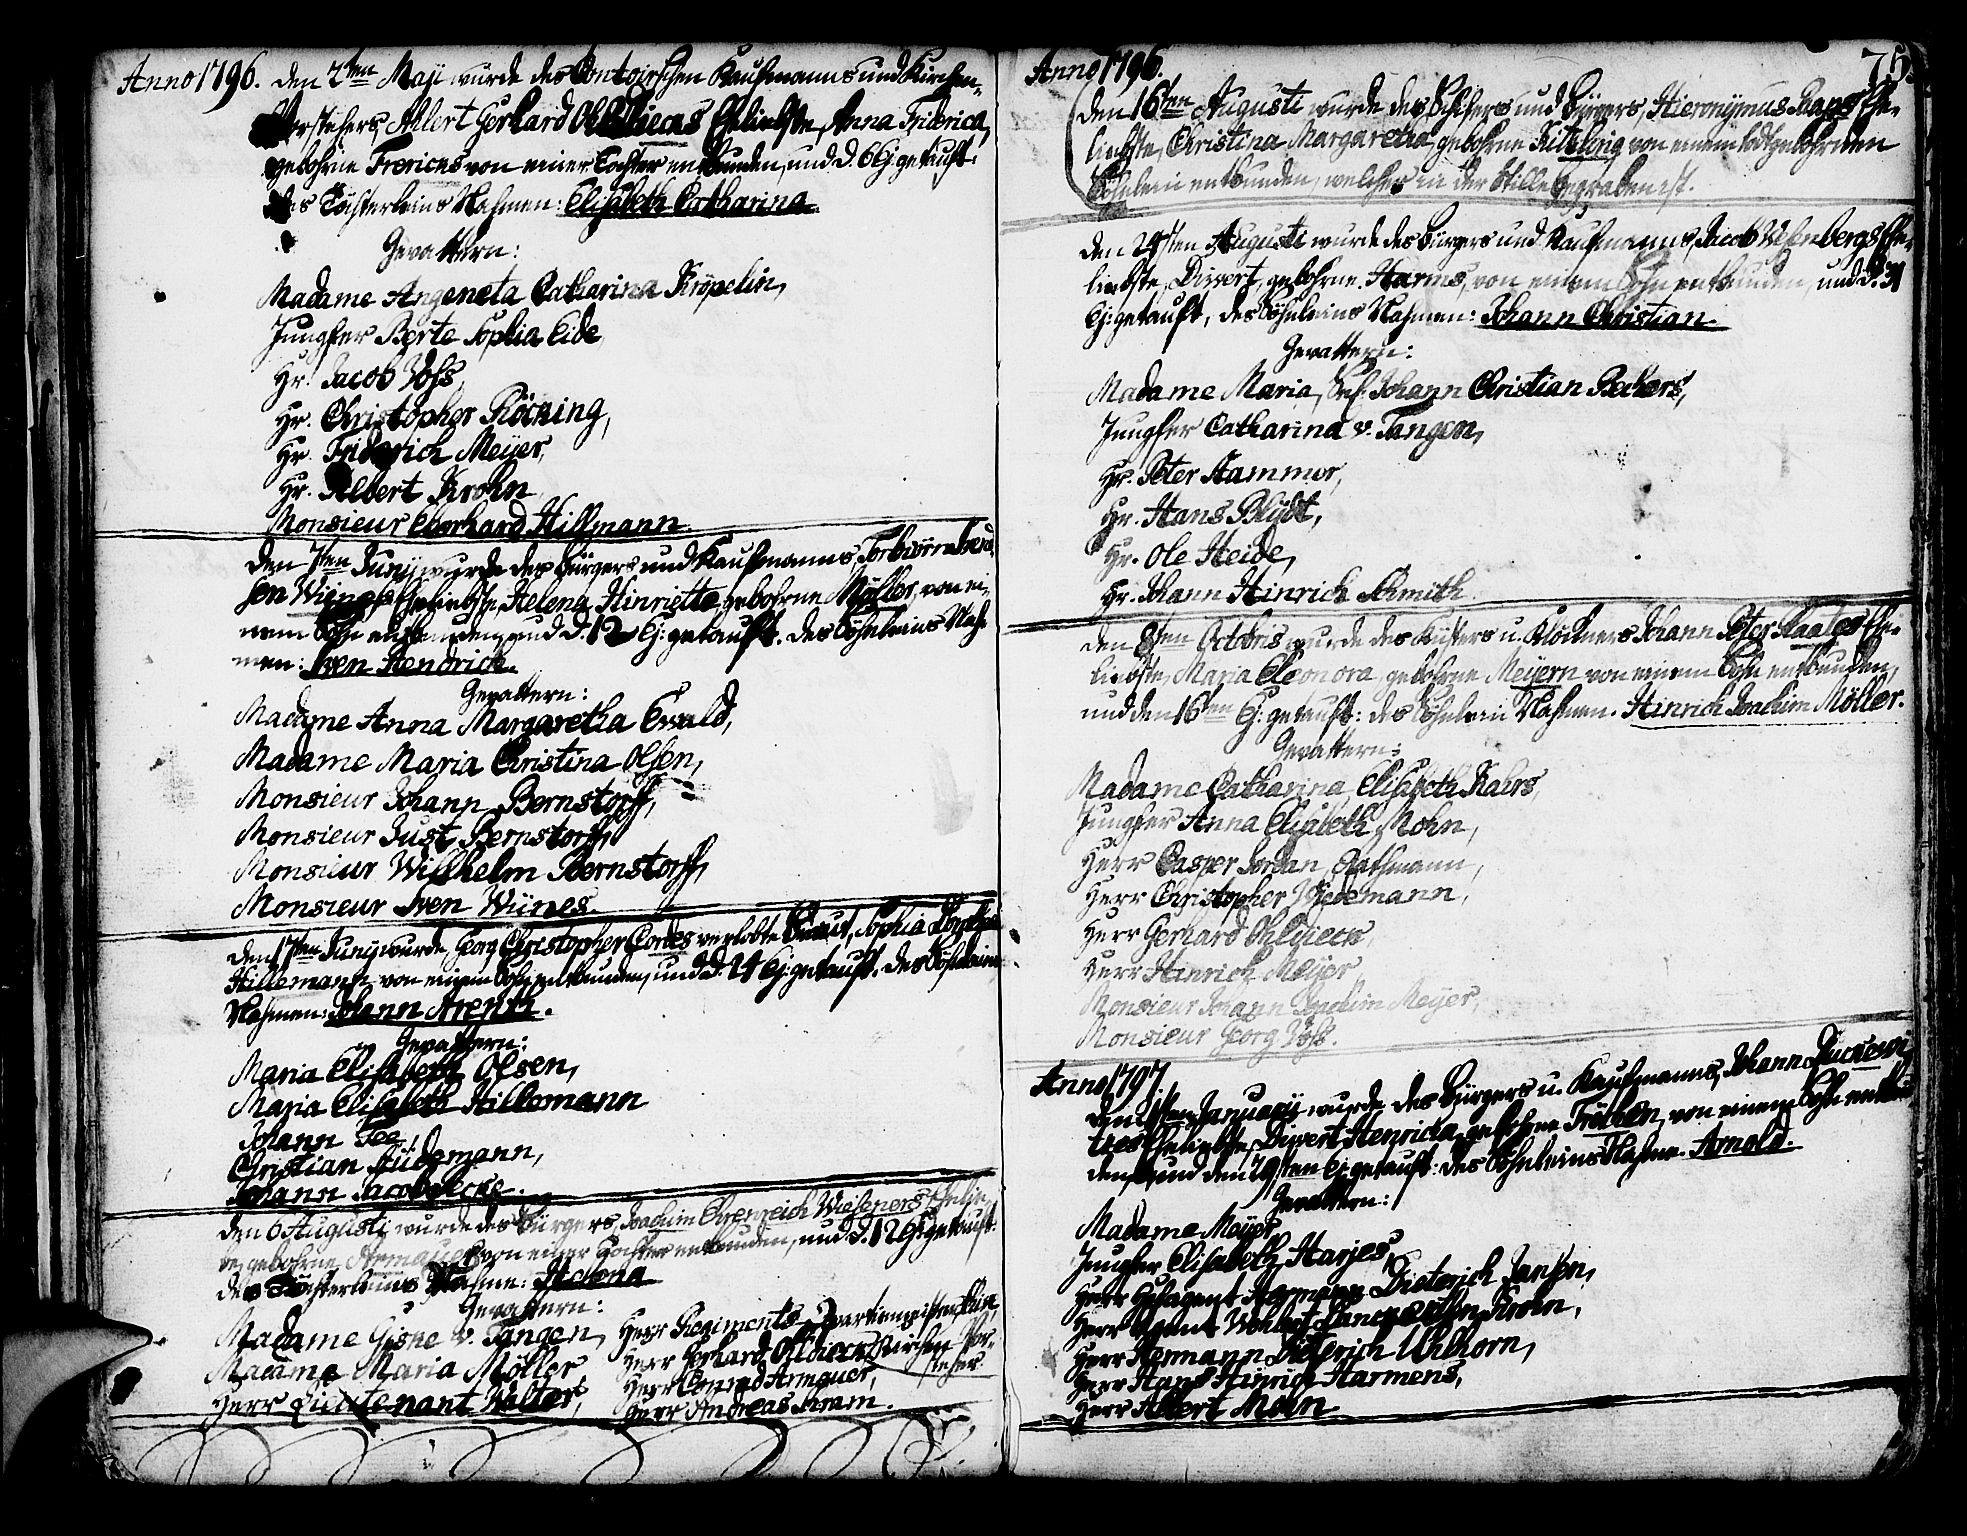 Anno 1796. den 2ten Maji wurde des Contoirschen Kaufmanns und Kirchen-
Vorstehers, Ahlert Gerhard Eheliebste, Anna Friderica,
gebohrne Frericks von einer Tochter entbunden, und d. 6 Ej. getauft.
des Töchterleins Nahmen: Elisabeth Catharina.
Gevattern:
Madame Angeneta Catharina Kröpelin,
Jungfer Berte Sophia Eide,
Hr. Jacob Voss,
Hr. Christopher Röcking,
Hr. Friderich Meyer,
Hr. Albert Krohn
Monsieur Eberhard Hillmann.
den 7ten Junij wurde des Bürgers und Kaufmanns,
sen Wiines Eheliebste, Helena Hinrietta gebohrne Möller, von ei-
nem Sohn entbunden, und d. 12 Ej: getauft. des Söhnleins Nah-
men: Sven Hendrich.
Gevattern:
Madame Anna Margaretha Ewald,
Madame Maria Christina Olsen,
Monsieur Johann Bernstorff,
Monsieur Just Bernstorff,
Monsieur Willhelm Bernstorff,
Monsieur Sven Wiines.
den 17ten Junij wurde Georg Christopher Cordes verlobte Braut, Sophia
Hillemann, von einem Sohn entbunden, und d. 24 Ej: getauft. des Söhnleins
Nahmen: Johann Arenth.
Gevattern:
Maria Elisabeth Olsen,
Maria Elisabeth Hillemann
Johann
Christian Lüdemann,
Johann
den 6 Augusti wurde des Bürgers Joachim Ehrenreich Wieseners Ehelieb-
ste, gebohrne Armauer von einer Tochter entbunden, und d. 12 Ej: getauft.
des Töchterleins Nahme: Helena
Gevattern:
Madame Giske v. Tangen,
Madame Maria Möller
Herr Lieutenant Walter,
Herr Regiments Quartiermeister
Herr Gerhard Kirchen Vor-
steher.
Herr Conrad Armauer,
Herr Andreas Kram.
75.
Anno 1796.
den 16ten Augusti wurde des Schiffers und Bürgers, Hieronymus Ehe-
liebste, Christina Margaretha, gebohrne von einem todtgebohrnen
Söhnlein entbunden, welches in der Stille begraben ist.
den 24sten Augusti wurde des Bürgers und Kaufmanns, Jacob Wesenbergs Ehe-
liebste, Divert, gebohrne Harms, von einem Sohn entbunden, und d. 31
Ej: getauft, des Söhnleins Nahmen: Johann Christian.
Gevattern:
Madame Maria, Johann Christian Beckers,
Jungfer Catharina v. Tangen,
Hr. Peter Hammer,
Hr. Hans Blydt,
Hr. Ole Heide,
Hr. Johann Hinrich Schmith.
den 8ten Octobris wurde des Küsters u. Klöckners Johann Peter Ehe-
liebste, Maria Eleonora, gebohrne Meyern von einem Sohn entbunden,
und den 16ten Ej: getauft: des Söhnlein Nahmen. Hinrich Joachim Möller.
Gevattern:
Madame Catharina Elisabeth Kahrs,
Jungfer Anna Elisabeth Mohn,
Herr Casper Jordan, Rathmann,
Herr Christopher Wiedemann,
Herr Gerhard
Herr Hinrich Meyer,
Monsieur Johann Joachim Meyer,
Monsieur Georg Voss.
Anno 1797.
den Januarij wurde des Bürgers u. Kaufmanns, Johann
Eheliebste, Divert Henricka, gebohrne von einem Sohn entbun-
den, und den 29sten Ej: getauft: des Söhnleins Nahme. Arnold.
Gevattern:
Madame Meyer,
Jungfer Elisabeth Harjes,
Herr Hofagent Hermann Dieterich Jansen,
Herr Agent Wollert Krohn,
Herr Hermann Dieterich Uhlhorn,
Herr Hans Hinrich Harmens,
Herr Albert Mohn